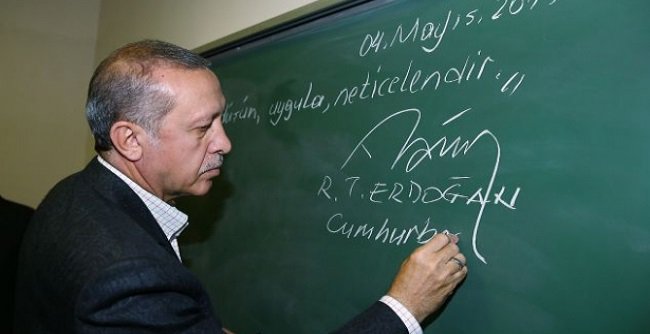 04. Mayıs. 201
uygula, neticelendir."
R. T. ERDOĞAN
Cumhurba